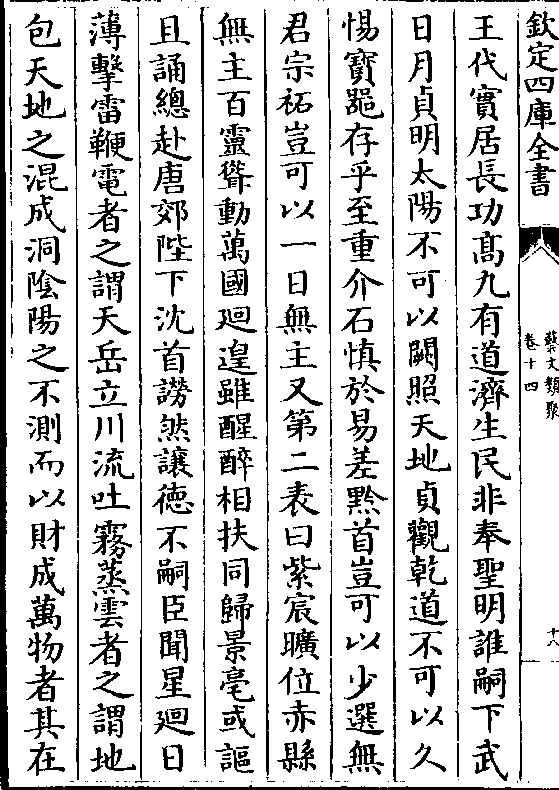 欽定四庫全書
藝文類聚
卷十四
十八
王代實居長功髙九有道濟生民非奉聖明誰嗣下武
日月貞明太陽不可以闕照天地貞觀乾道不可以久
惕寶噐存乎至重介石慎於易差黔首豈可以少選無
君宗祏豈可以一日無主又第二表曰紫宸曠位赤縣
無主百靈聳動萬國廻遑雖醒醉相扶同歸景亳或謳
且誦總赴唐郊陛下沈首謗然讓德不嗣臣聞星廻日
薄擊雷鞭電者之謂天岳立川流吐霧蒸雲者之謂地
包天地之混成洞陰陽之不測而以財成萬物者其在